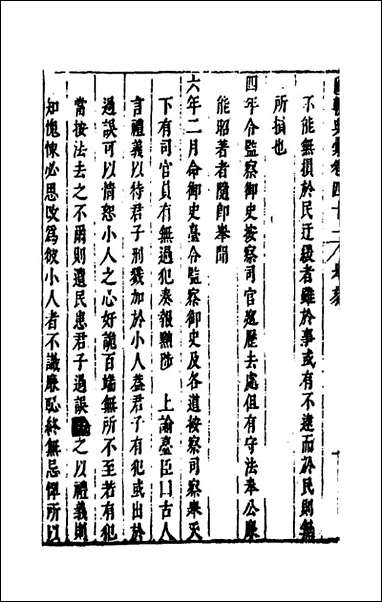 國朝典彙卷四十二
不能無損於民迂緩者雖於事或有不逮而於民則無
所損也
四年令監察御史按察司官巡歷去處但有守法奉公廉
能昭著者隨即舉聞
六年二月命御史臺令監察御史及各道按察司察舉天
下有司官員有無過犯奏報黜陟 上諭臺臣曰古人
言禮義以待君子刑戮加於小人蓋君子有犯或出於
過誤可以情恕小人之心奸詭百端無所不至若有犯
當按法去之不爾則遺民患君子過誤之以禮義則
知愧悚必思改爲彼小人者不識廉恥終無忌憚所以